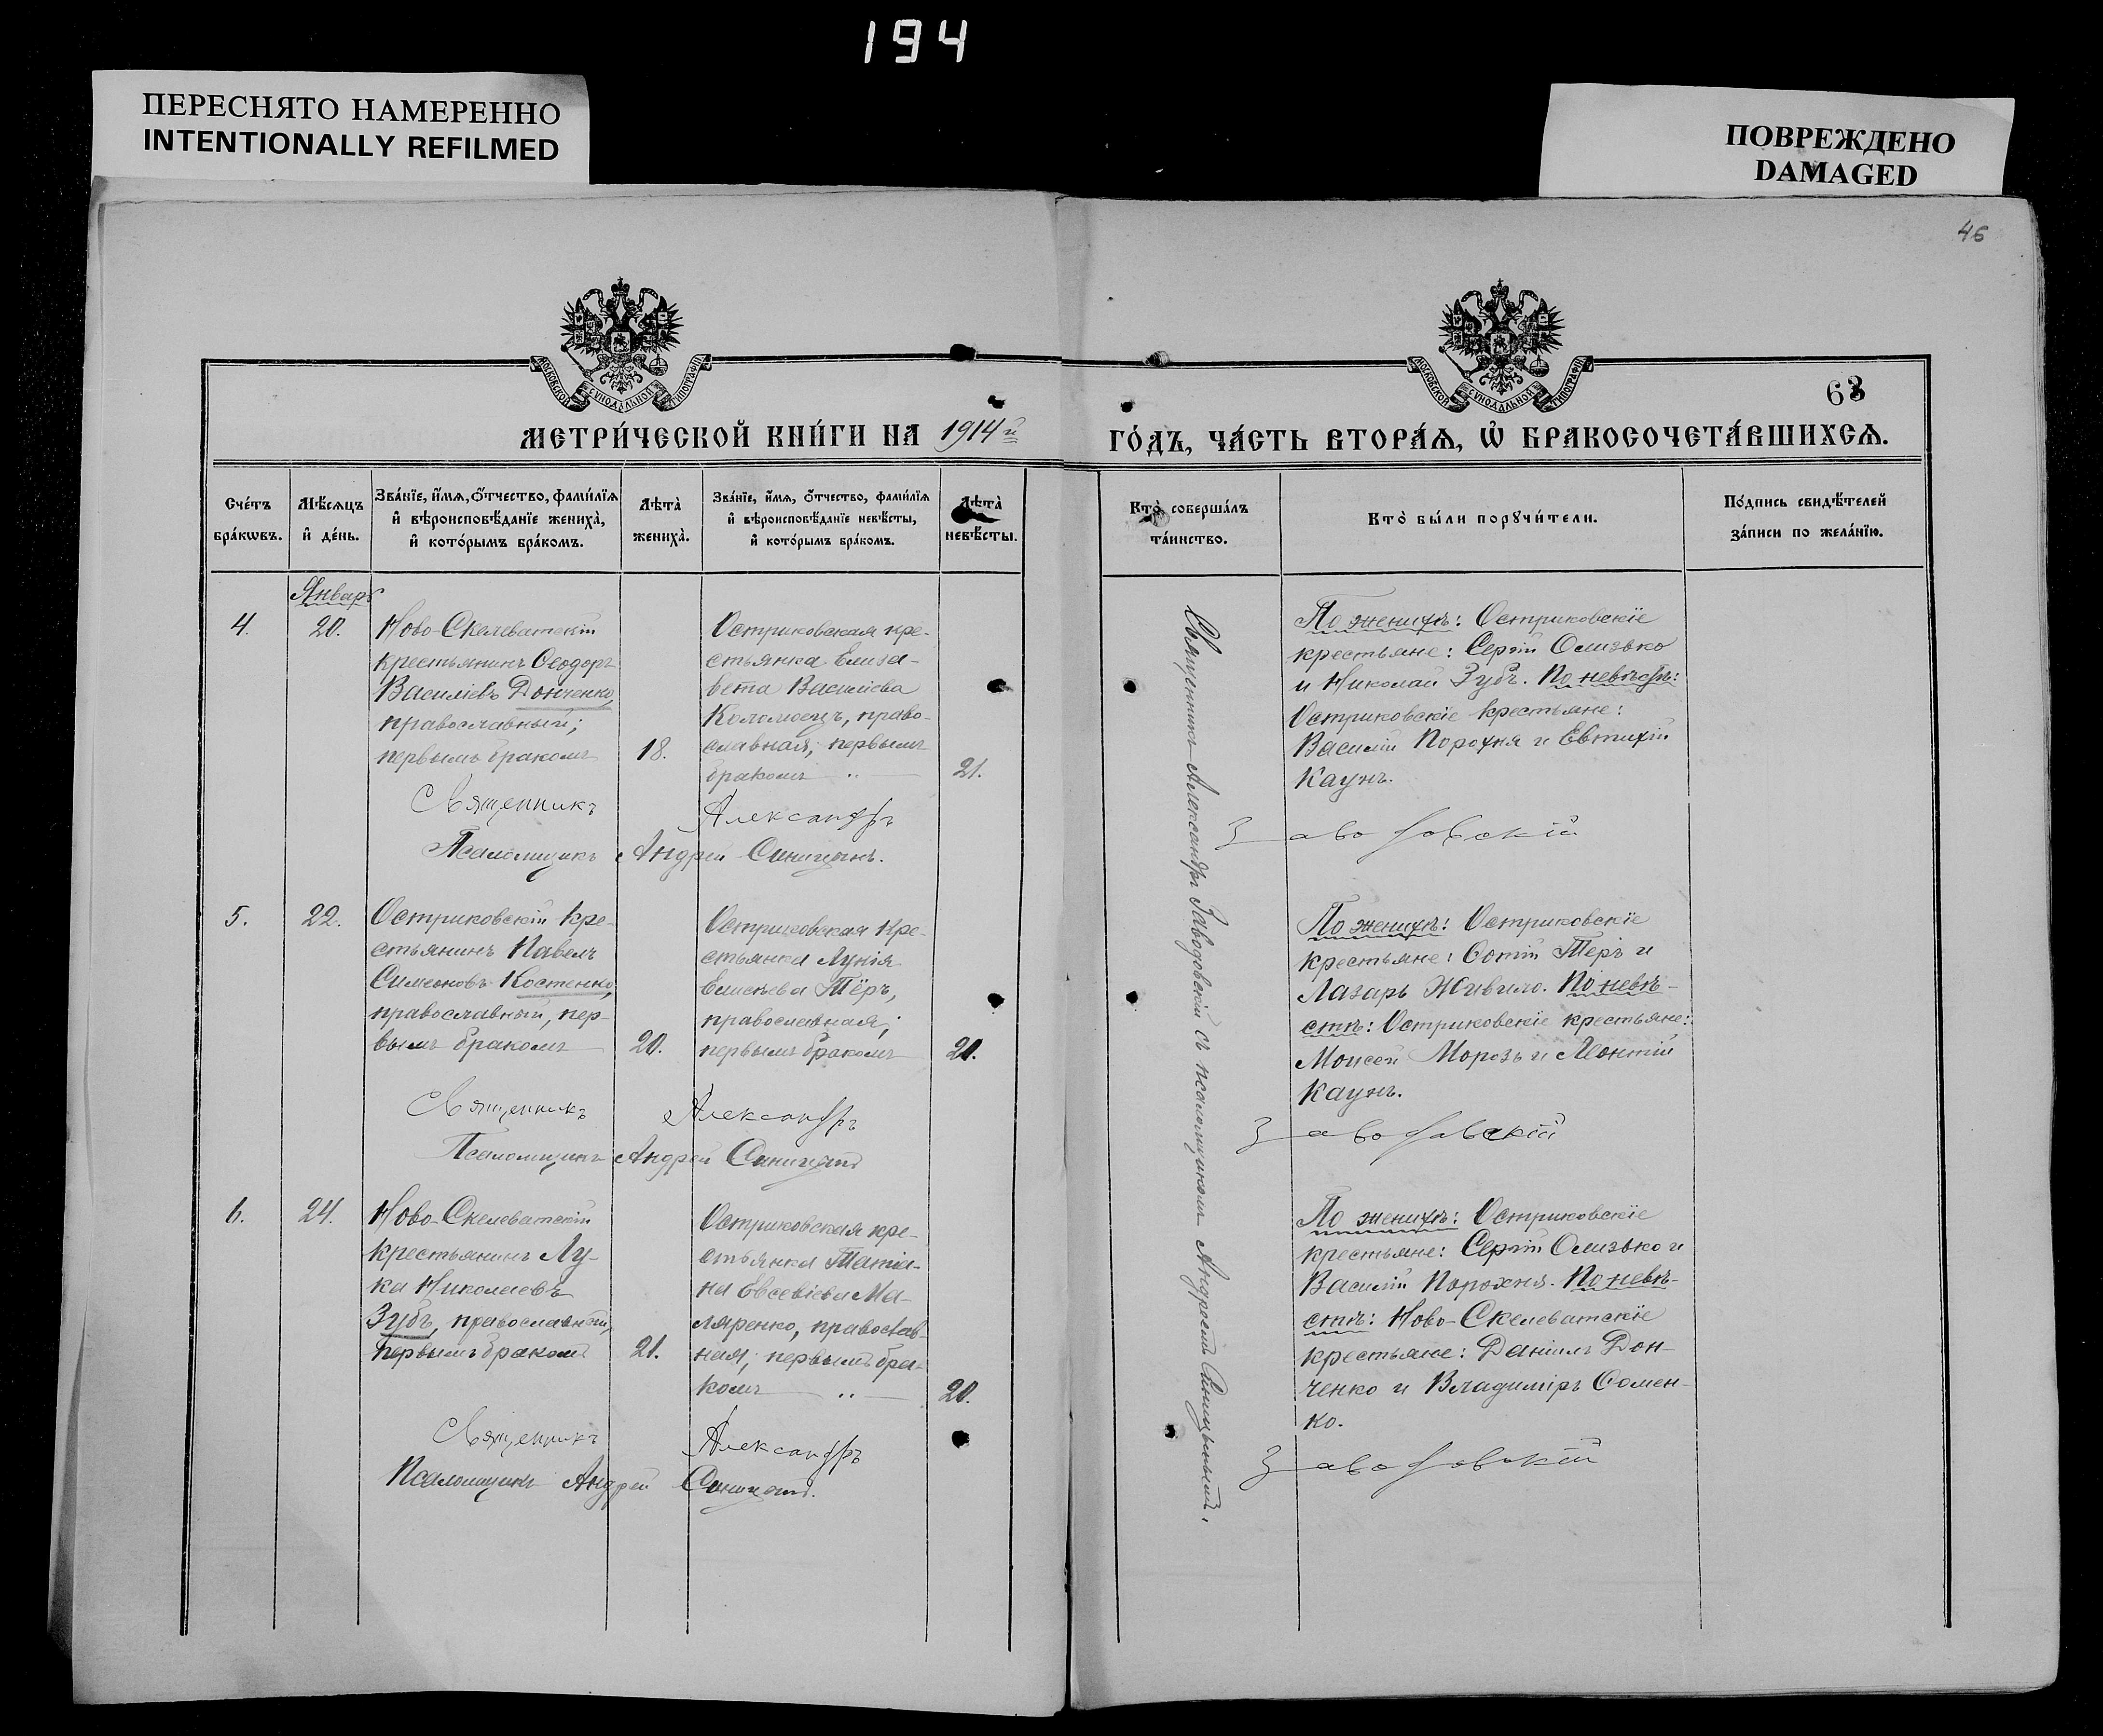 194
ПЕРЕСНЯТО НАМЕРЕННО
INTENTIONALLY REFILMED
ПОВРЕЖДЕНО
DAMAGED
46
МОСКОВСКОЙ СѴНОДАЛЬНОЙ ТИПОГРАФІИ
МОСКОВСКОЙ СѴНОДАЛЬНОЙ ТИПОГРАФІИ
63
МЕТРИ́ЧЕСКОЙ КНИ́ГИ НА 1914й
ГО́ДЪ, ЧА́СТЬ ВТОРА́Ѧ, Ѡ҆ БРАКОСОЧЕТА́ВШИХСѦ.
Сче́тъ
бра́кѡвъ.
Мѣ́сѧцъ
и҆ де́нь.
Зва́нїе, и҆́мѧ, ѻ҆́тчество, фами́лїѧ
и҆ вѣроисповѣ́данїе жениха̀,
и҆ кото́рымъ бра́комъ.
Лѣта̀
жениха̀.
Зва́нїе, и҆́мѧ, ѻ҆́тчество, фами́лїѧ
и҆ вѣроисповѣ́данїе невѣ́сты,
и҆ кото́рымъ бра́комъ.
Лѣта̀
невѣ́сты.
Кто̀ соверша́лъ
та́инство.
Кто̀ бы́ли порꙋчи́тели.
По́дпись свидѣ́телей
за́писи по жела́нїю.
Январь
4.
20.
Ново-Скелеватскій
крестьянинъ Ѳеодоръ
Василіевъ Донченко,
православный;
первымъ бракомъ
18.
Остриковская кре-
стьянка Елиза-
вета Василіева
Коломоецъ, право-
славная; первымъ
бракомъ
21.
Священникъ Александръ Заводовскій съ псаломщикомъ Андреемъ Синицынымъ.
По женихѣ: Остриковскіе
крестьяне: Сергій Олизько
и Николай Зубъ. По невѣстѣ:
Остриковскіе крестьяне:
Василій Порохня и Евтихій
Каунъ.
Священникъ Александръ Заводовскій
Псаломщикъ Андрей Синицынъ.
5.
22.
Остриковскій кре-
стьянинъ Павелъ
Симеоновъ Костенко,
православный, пер-
вымъ бракомъ
20.
Остриковская кре-
стьянка Лукія
Елисѣева Тёръ,
православная;
первымъ бракомъ
20.
По женихѣ: Остриковскіе
крестьяне: Фотій Теръ и
Лазарь Живило. По невѣ-
стѣ: Остриковскіе крестьяне:
Моисей Морозъ и Леонтій
Каунъ.
Священникъ Александръ Заводовскій
Псаломщикъ Андрей Синицынъ
6.
24.
Ново-Скелеватскій
крестьянинъ Лу-
ка Николаевъ
Зубъ, православный,
первымъ бракомъ
21.
Остриковская кре-
стьянка Татіа-
на Евсевіева Ма-
ляренко, православ-
ная; первымъ бра-
комъ
20.
По женихѣ: Остриковскіе
крестьяне: Сергій Олизько и
Василій Порохня. По невѣ-
стѣ: Ново-Скелеватскіе
крестьяне: Даніилъ Дон-
ченко и Владиміръ Фомен-
ко.
Священникъ Александръ Заводовскій
Псаломщикъ Андрей Синицынъ.